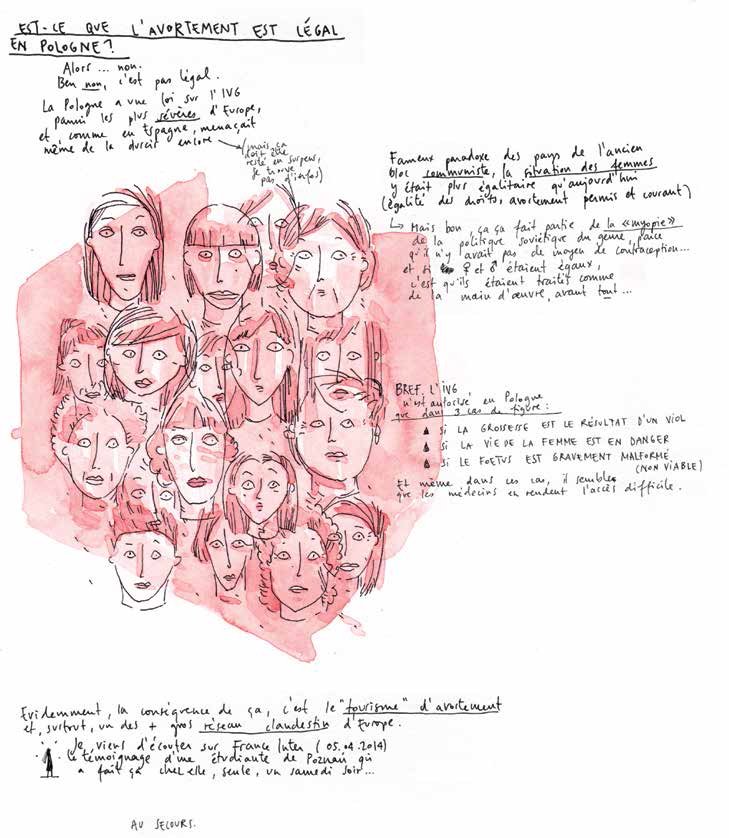 EST-CE QUE L'AVORTEMENT EST LÉGAL
EN POLOGNE ?
Alors ... non.
Ben non, c'est pas légal.
La Pologne a une loi sur l'IVG
parmi les plus sévères d'Europe,
et comme en Espagne, menaçait
même de la durcir encore
(mais ça
doit être
resté en suspens,
je trouve
pas d'infos)
Fameux paradoxe des pays de l'ancien
bloc communiste, la situation des femmes
y était plus égalitaire qu'aujourd'hui
(égalité des droits, avortement permis et courant)
↳ Mais bon, ça ça fait partie de la «myopie»
de la politique soviétique du genre, parce
qu'il n'y avait pas de moyen de contraception...
et si ♀ et ♂ étaient égaux,
c'est qu'ils étaient traités comme
de la main d'œuvre, avant tout...
BREF. L'IVG
n'est autorisé en Pologne
que dans 3 cas de figure :
▲ SI LA GROSSESSE EST LE RÉSULTAT D'UN VIOL
▲ SI LA VIE DE LA FEMME EST EN DANGER
▲ SI LE FOETUS EST GRAVEMENT MALFORMÉ
(NON VIABLE)
Et même dans ces cas, il semble
que les médecins en rendent l'accès difficile.
Evidemment, la conséquence de ça, c'est le "tourisme" d'avortement
et, surtout, un des + gros réseau clandestin d'Europe.
Je viens d'écouter sur France Inter (05.04.2014)
le témoignage d'une étudiante de Poznań qui
a fait ça chez elle, seule, un samedi soir...
AU SECOURS.